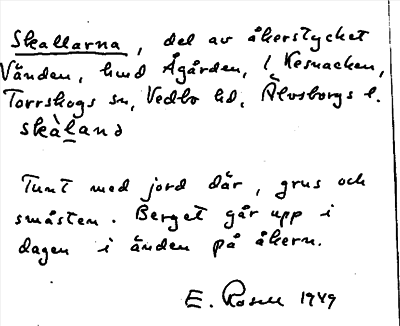 Skallarna, del av åkerstycket
Vänden, hmd Ågården, i Kesnacken,
Torrskogs sn, Vedbo hd, Älvsborgs l.
skàland
Tunt med jord där, grus och
småsten. Berget går upp i
dagen i änden på åkern.
E. Rosell 1949